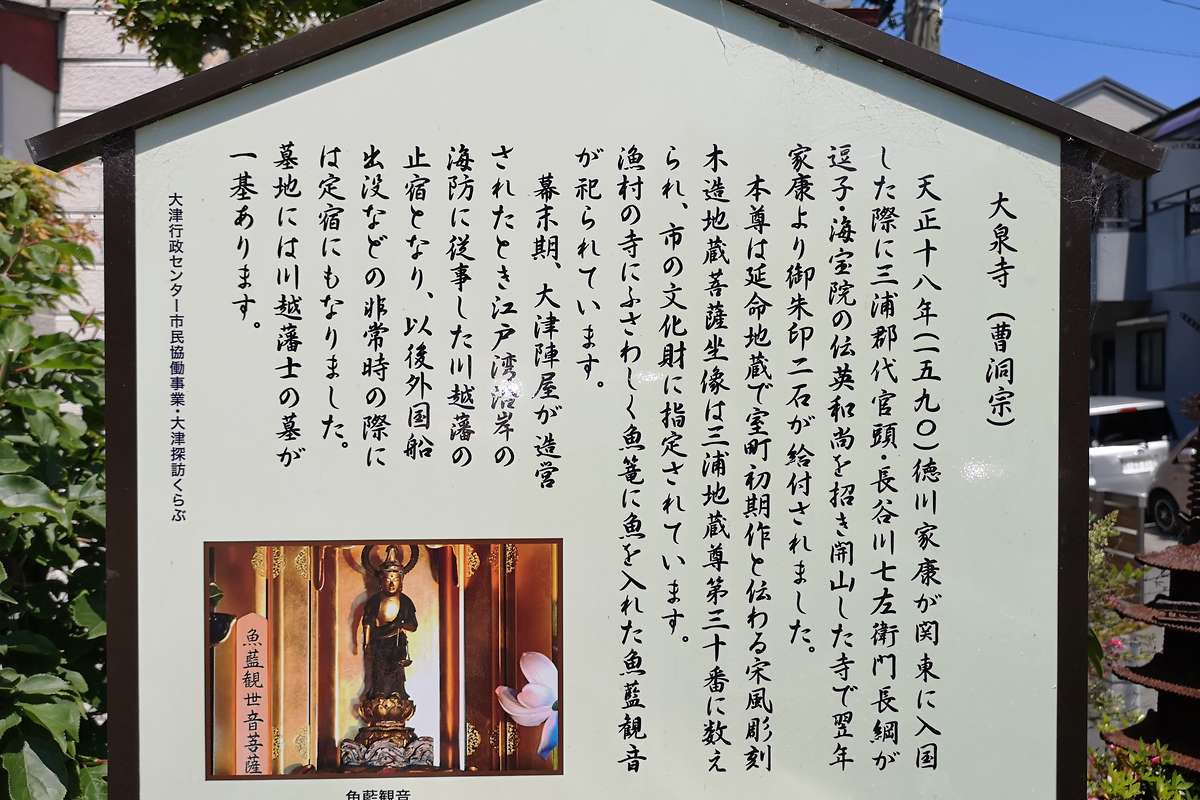 大泉寺(曹洞宗)
天正十八年(一五九〇)徳川家康が関東に入国
した際に三浦郡代官頭・長谷川七左衛門長綱が
逗子・海宝院の伝英和尚を招き開山した寺で翌年
家康より御朱印二石が給付されました。
本尊は延命地蔵で室町初期作と伝わる宋風彫刻
木造地蔵菩薩坐像は三浦地蔵尊第三十番に数え
られ、市の文化財に指定されています。
漁村の寺にふさわしく魚篭に魚を入れた魚藍観音
が祀られています。
幕末期、大津陣屋が造営
されたとき江戸湾沿岸の
海防に従事した川越藩の
止宿となり、以後外国船
出没などの非常時の際に
は定宿にもなりました。
墓地には川越藩士の墓が
一基あります。
大津行政センター市民協働事業・大津探訪くらぶ
魚藍観世音菩薩
魚藍観音